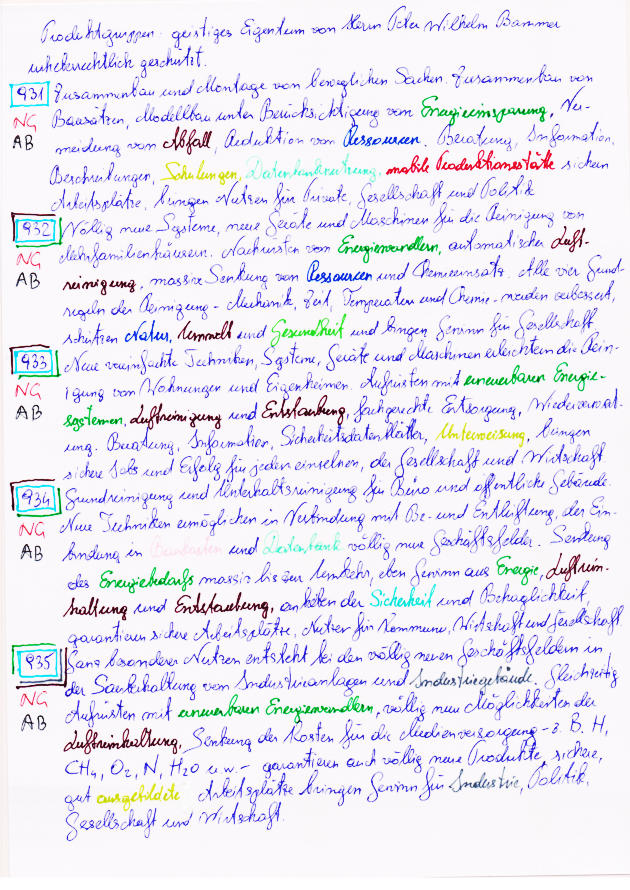 Produktgruppen: geistiges Eigentum von Herrn Peter Wilhelm Bammer
urheberrechtlich geschützt.
931 Zusammenbau und Montage von beweglichen Sachen. Zusammenbau von
NG Bausätzen, Modellbau unter Berücksichtigung von Energieeinsparung, Ver-
AB meidung von Abfall, Reduktion von Ressourcen. Beratung, Information,
Beschreibungen, Schulungen, Datenbanknutzung, mobile Produktionsstätte sichern
Arbeitsplätze, bringen Nutzen für Private, Gesellschaft und Politik
932 Völlig neue Systeme, neue Geräte und Maschinen für die Reinigung von
NG Mehrfamilienhäusern. Nachrüsten von Energiewandlern, automatischer Luft-
AB reinigung, massive Senkung von Ressourcen und Chemieeinsatz. Alle vier Grund-
regeln der Reinigung - Mechanik, Zeit, Temperatur und Chemie - werden verbessert,
schützen Natur, Umwelt und Gesundheit und bringen Gewinn für Gesellschaft
933 Neue vereinfachte Techniken, Systeme, Geräte und Maschinen erleichtern die Rein-
NG igung von Wohnungen und Eigenheimen. Aufrüsten mit erneuerbaren Energie-
AB systemen, Luftreinigung und Entstaubung, fachgerechte Entsorgung, Wiederverwert-
ung. Beratung, Information, Sicherheitsdatenblätter, Unterweisung, bringen
sichere Jobs und Erfolg für jeden einzelnen, der Gesellschaft und Wirtschaft
934 Grundreinigung und Unterhaltsreinigung für Büro und öffentliche Gebäude.
NG Neue Techniken ermöglichen in Verbindung mit Be- und Entlüftung, der Ein-
AB bindung in Baukasten und Datenbank völlig neue Geschäftsfelder. Senkung
des Energiebedarfs massiv bis zur Umkehr, eben Gewinn aus Energie, Luftrein-
haltung und Entstaubung, anheben der Sicherheit und Behaglichkeit,
garantieren sichere Arbeitsplätze, Nutzen für Kommune, Wirtschaft und Gesellschaft
935 Ganz besonderer Nutzen entsteht bei den völlig neuen Geschäftsfeldern in
NG der Sauberhaltung von Industrieanlagen und Industriegebäude. Gleichzeitig
AB Aufrüsten mit erneuerbaren Energiewandlern, völlig neue Möglichkeiten der
Luftreinhaltung, Senkung der Kosten für die Medienversorgung - z. B. H,
CH4, O2, N, H2O u.w. - garantieren auch völlig neue Produkte, sichere,
gut ausgebildete Arbeitsplätze bringen Gewinn für Industrie, Politik,
Gesellschaft und Wirtschaft.